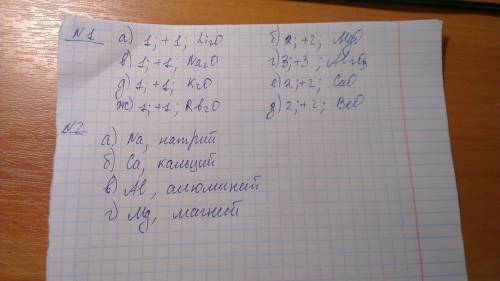 N1 а) 1; +1; Li2O б) 2; +2, MgO
в) 1; +1, Na2O г) 3; +3, Al2O3
д) 1; +1; K2O е) 2; +2; CaO
ж) 1; +1; Rb2O д) 2; +2; BeO
N2
а) Na, натрий
б) Ca, кальций
в) Al, алюминий
г) Mg, магний